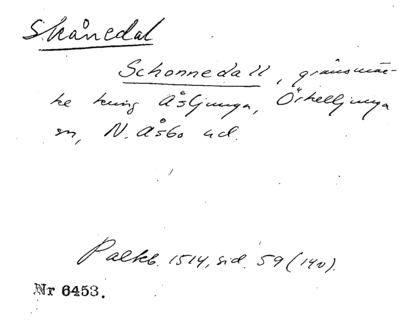 Skånedal
Schonnedall, gränsmär-
ke kring Åsljunga, Örkelljunga
sn, N. Åsbo hd.
Palkb. 1514, sid. 59 (140).
Nr 6453.